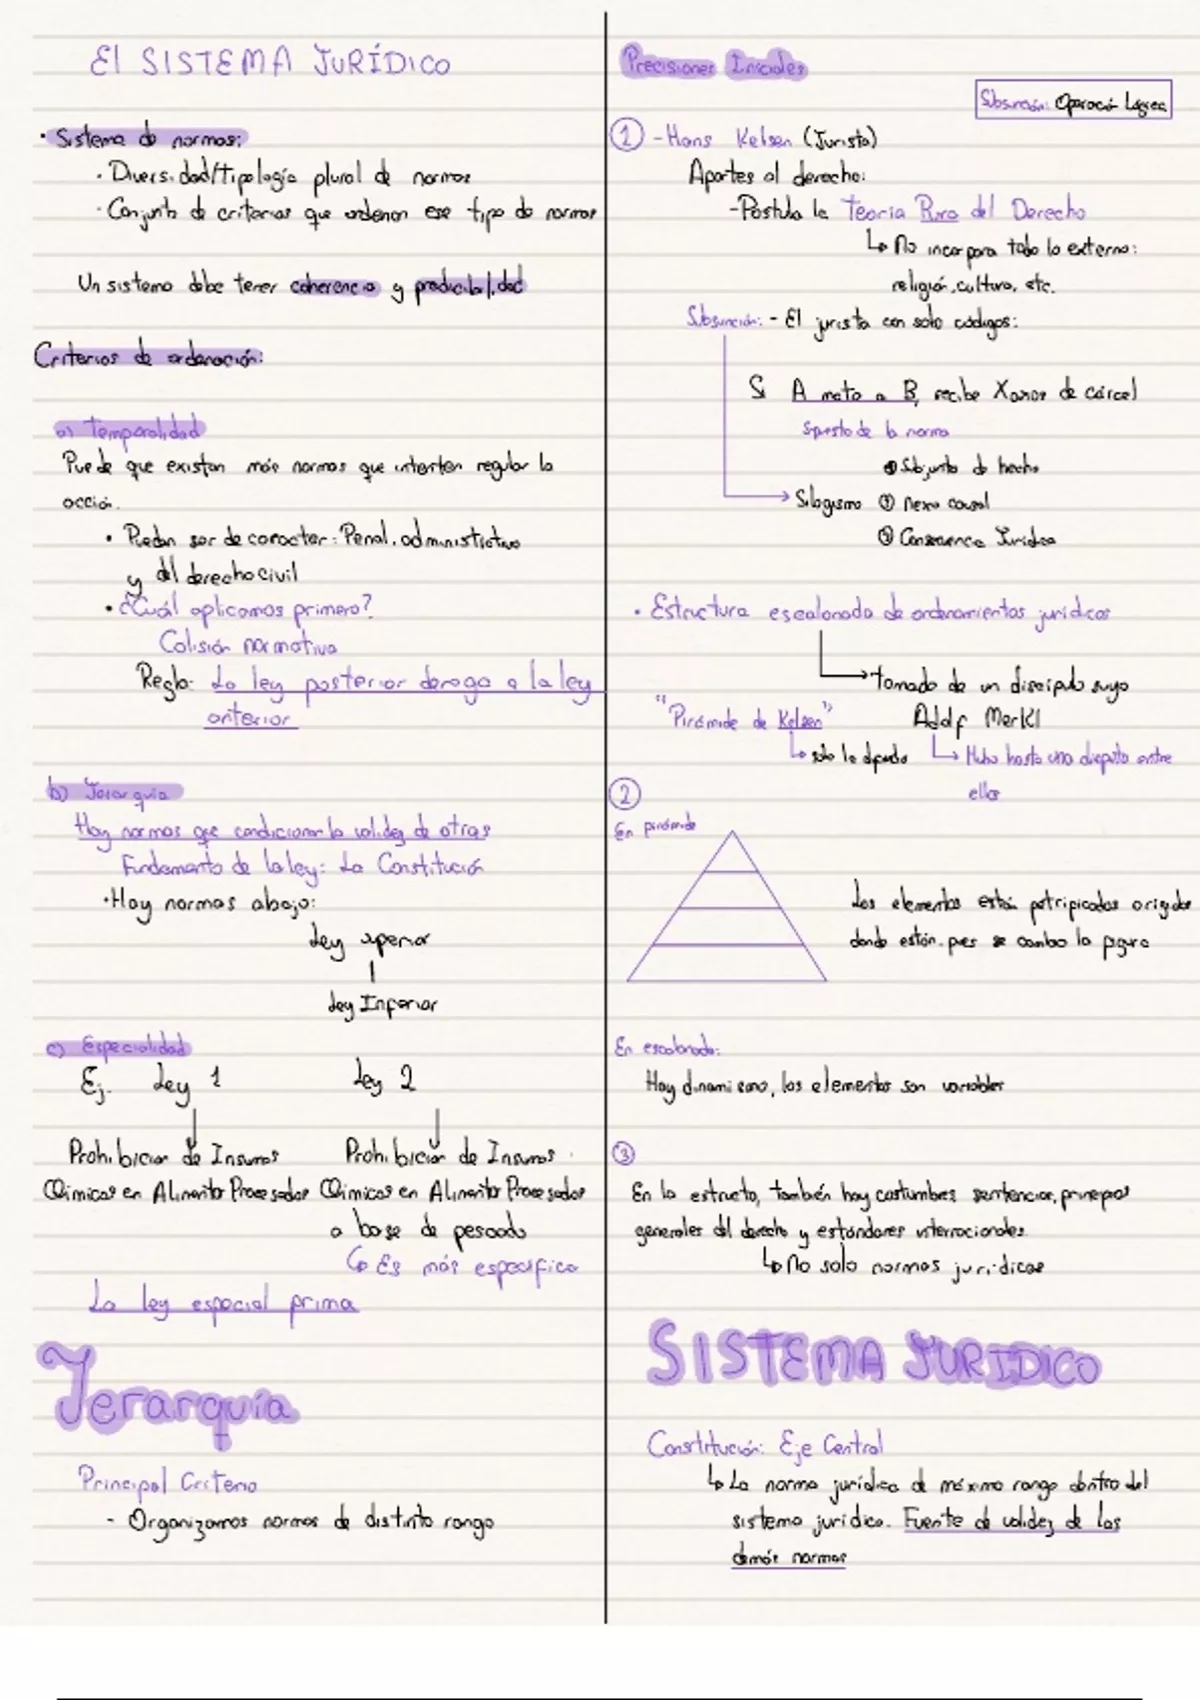 El SISTEMA JURÍDICO
• Sistema de normas:
• Diversidad/tipología plural de normas
• Conjunto de criterios que ordenan ese tipo de normas
Un sistema debe tener coherencia y predicibilidad
Criterios de ordenación:
a) Temporalidad
Puede que existan más normas que intenten regular la
acción.
• Puedan ser de caracter: Penal, administrativo
y del derecho civil
• ¿Cuál aplicamos primero?
Colisión normativa
Regla: La ley posterior deroga a la ley
anterior
b) Jerarquía
Hay normas que condicionan la validez de otras
Fundamento de la ley: La Constitución
• Hay normas abajo:
Ley superior
Ley Inferior
c) Especialidad
Ej. Ley 1 Ley 2
Prohibición de Insumos Prohibición de Insumos
Químicos en Alimento Procesados Químicos en Alimento Procesados
a base de pescado
Es más específica
La ley especial prima
Jerarquía
Principal Criterio
- Organizamos normas de distinto rango
Precisiones Iniciales
Subsunción: Operació Lógica
1 - Hans Kelsen (Jurista)
Aportes al derecho:
- Postula la Teoría Pura del Derecho
No incorpora todo lo externo:
religión, cultura, etc.
Subsunción: - El jurista con solo códigos:
Si A mata a B, recibe X años de cárcel
Supuesto de la norma
de hecho
Silogismo nexo causal
Consecuencia Jurídica
• Estructura escalonada de ordenamientos jurídicos
tomado de un discípulo suyo
"Pirámide de Kelsen" Adolf Merkl
solo la Hubo hasta una disputa entre
ellos
2
En pirámide
Los elementos están petrificados
donde están, pues se cambia la figura
En escalonada:
Hay dinamismo, los elementos son variables
3
En la también hay costumbres, sentencias, principios
generales del derecho y estándares internacionales.
No solo normas jurídicas
SISTEMA JURIDICO
Constitución: Eje Central
La norma jurídica de máximo rango dentro del
sistema jurídico. Fuente de validez de las
demás normas